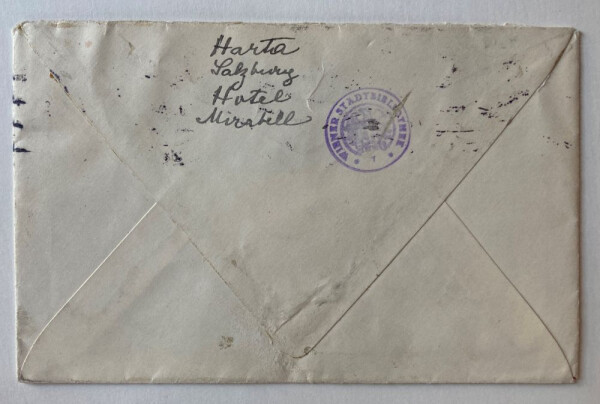 Harta
Salzburg
Hotel
Mirabell
WIENER STADTBIBLIOTHEK